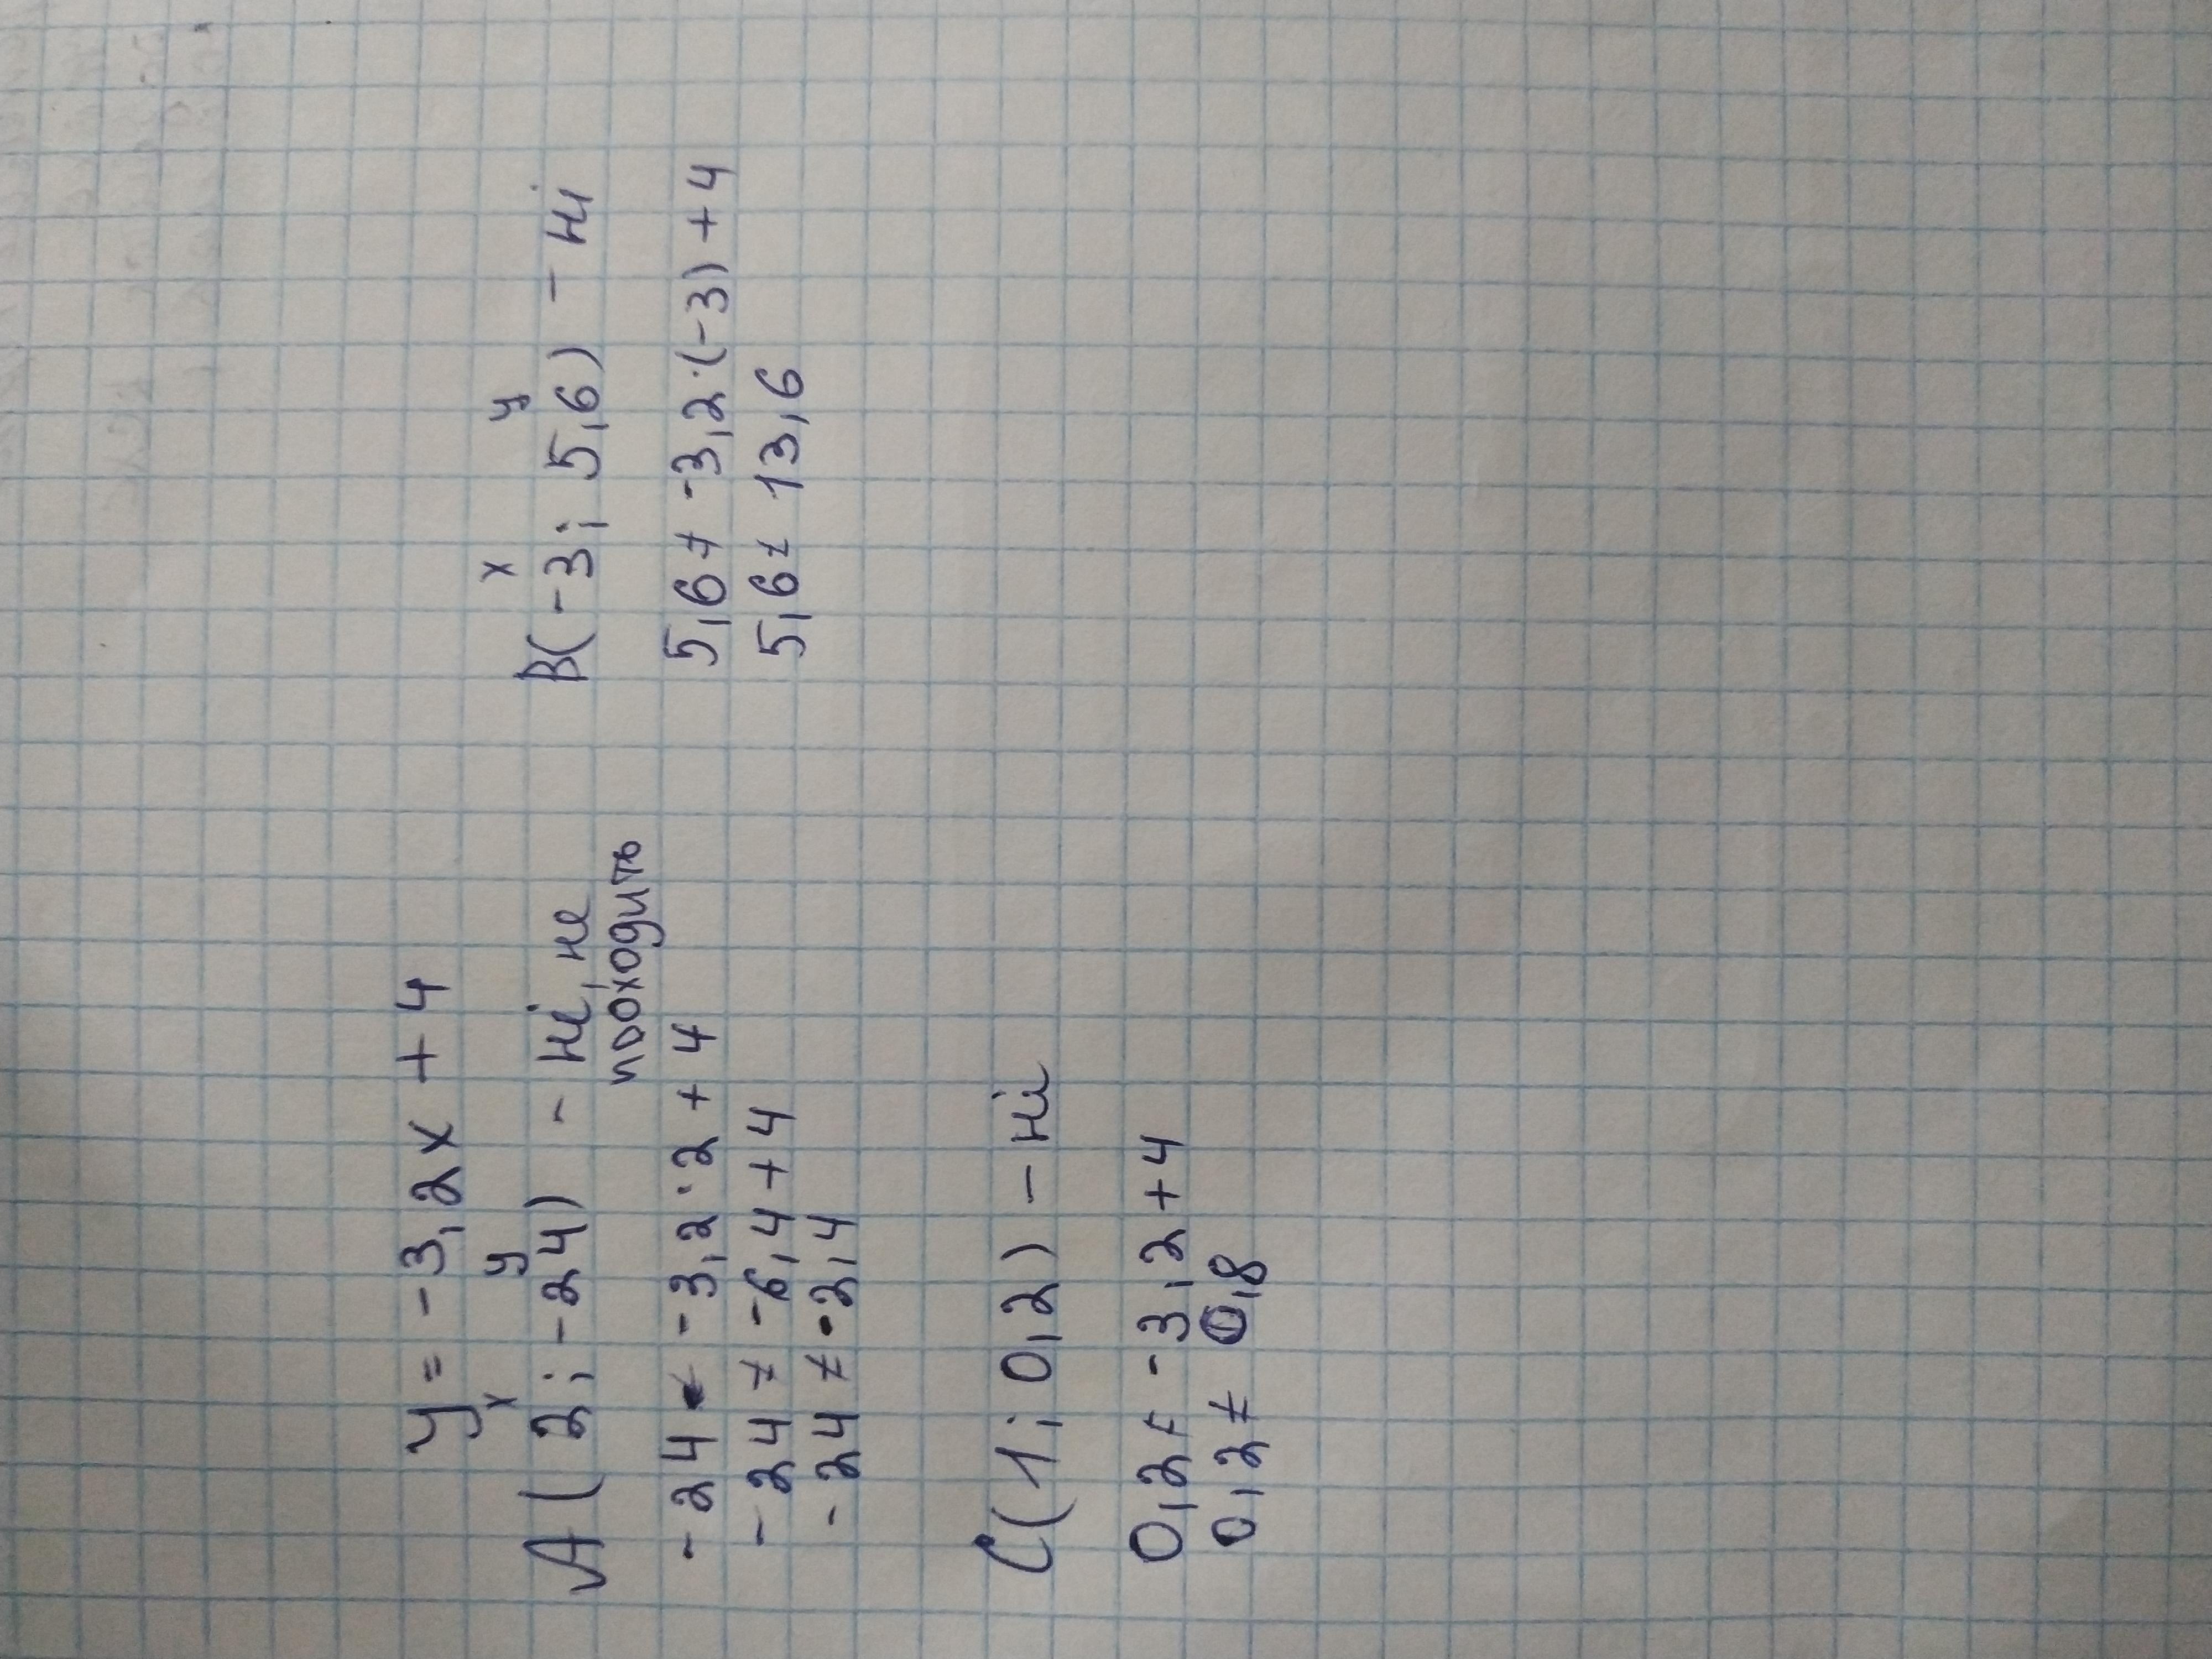 y = -3,2x + 4
x y
A ( 2 ; -24) - ні, не
проходить
-24 ≠ -3,2 · 2 + 4
-24 ≠ -6,4 + 4
-24 ≠ -2,4
x y
B(-3 ; 5,6) - ні
5,6 ≠ -3,2·(-3) + 4
5,6 ≠ 13,6
C( 1 ; 0,2) - ні
0,2 ≠ -3,2 + 4
0,2 ≠ 0,8